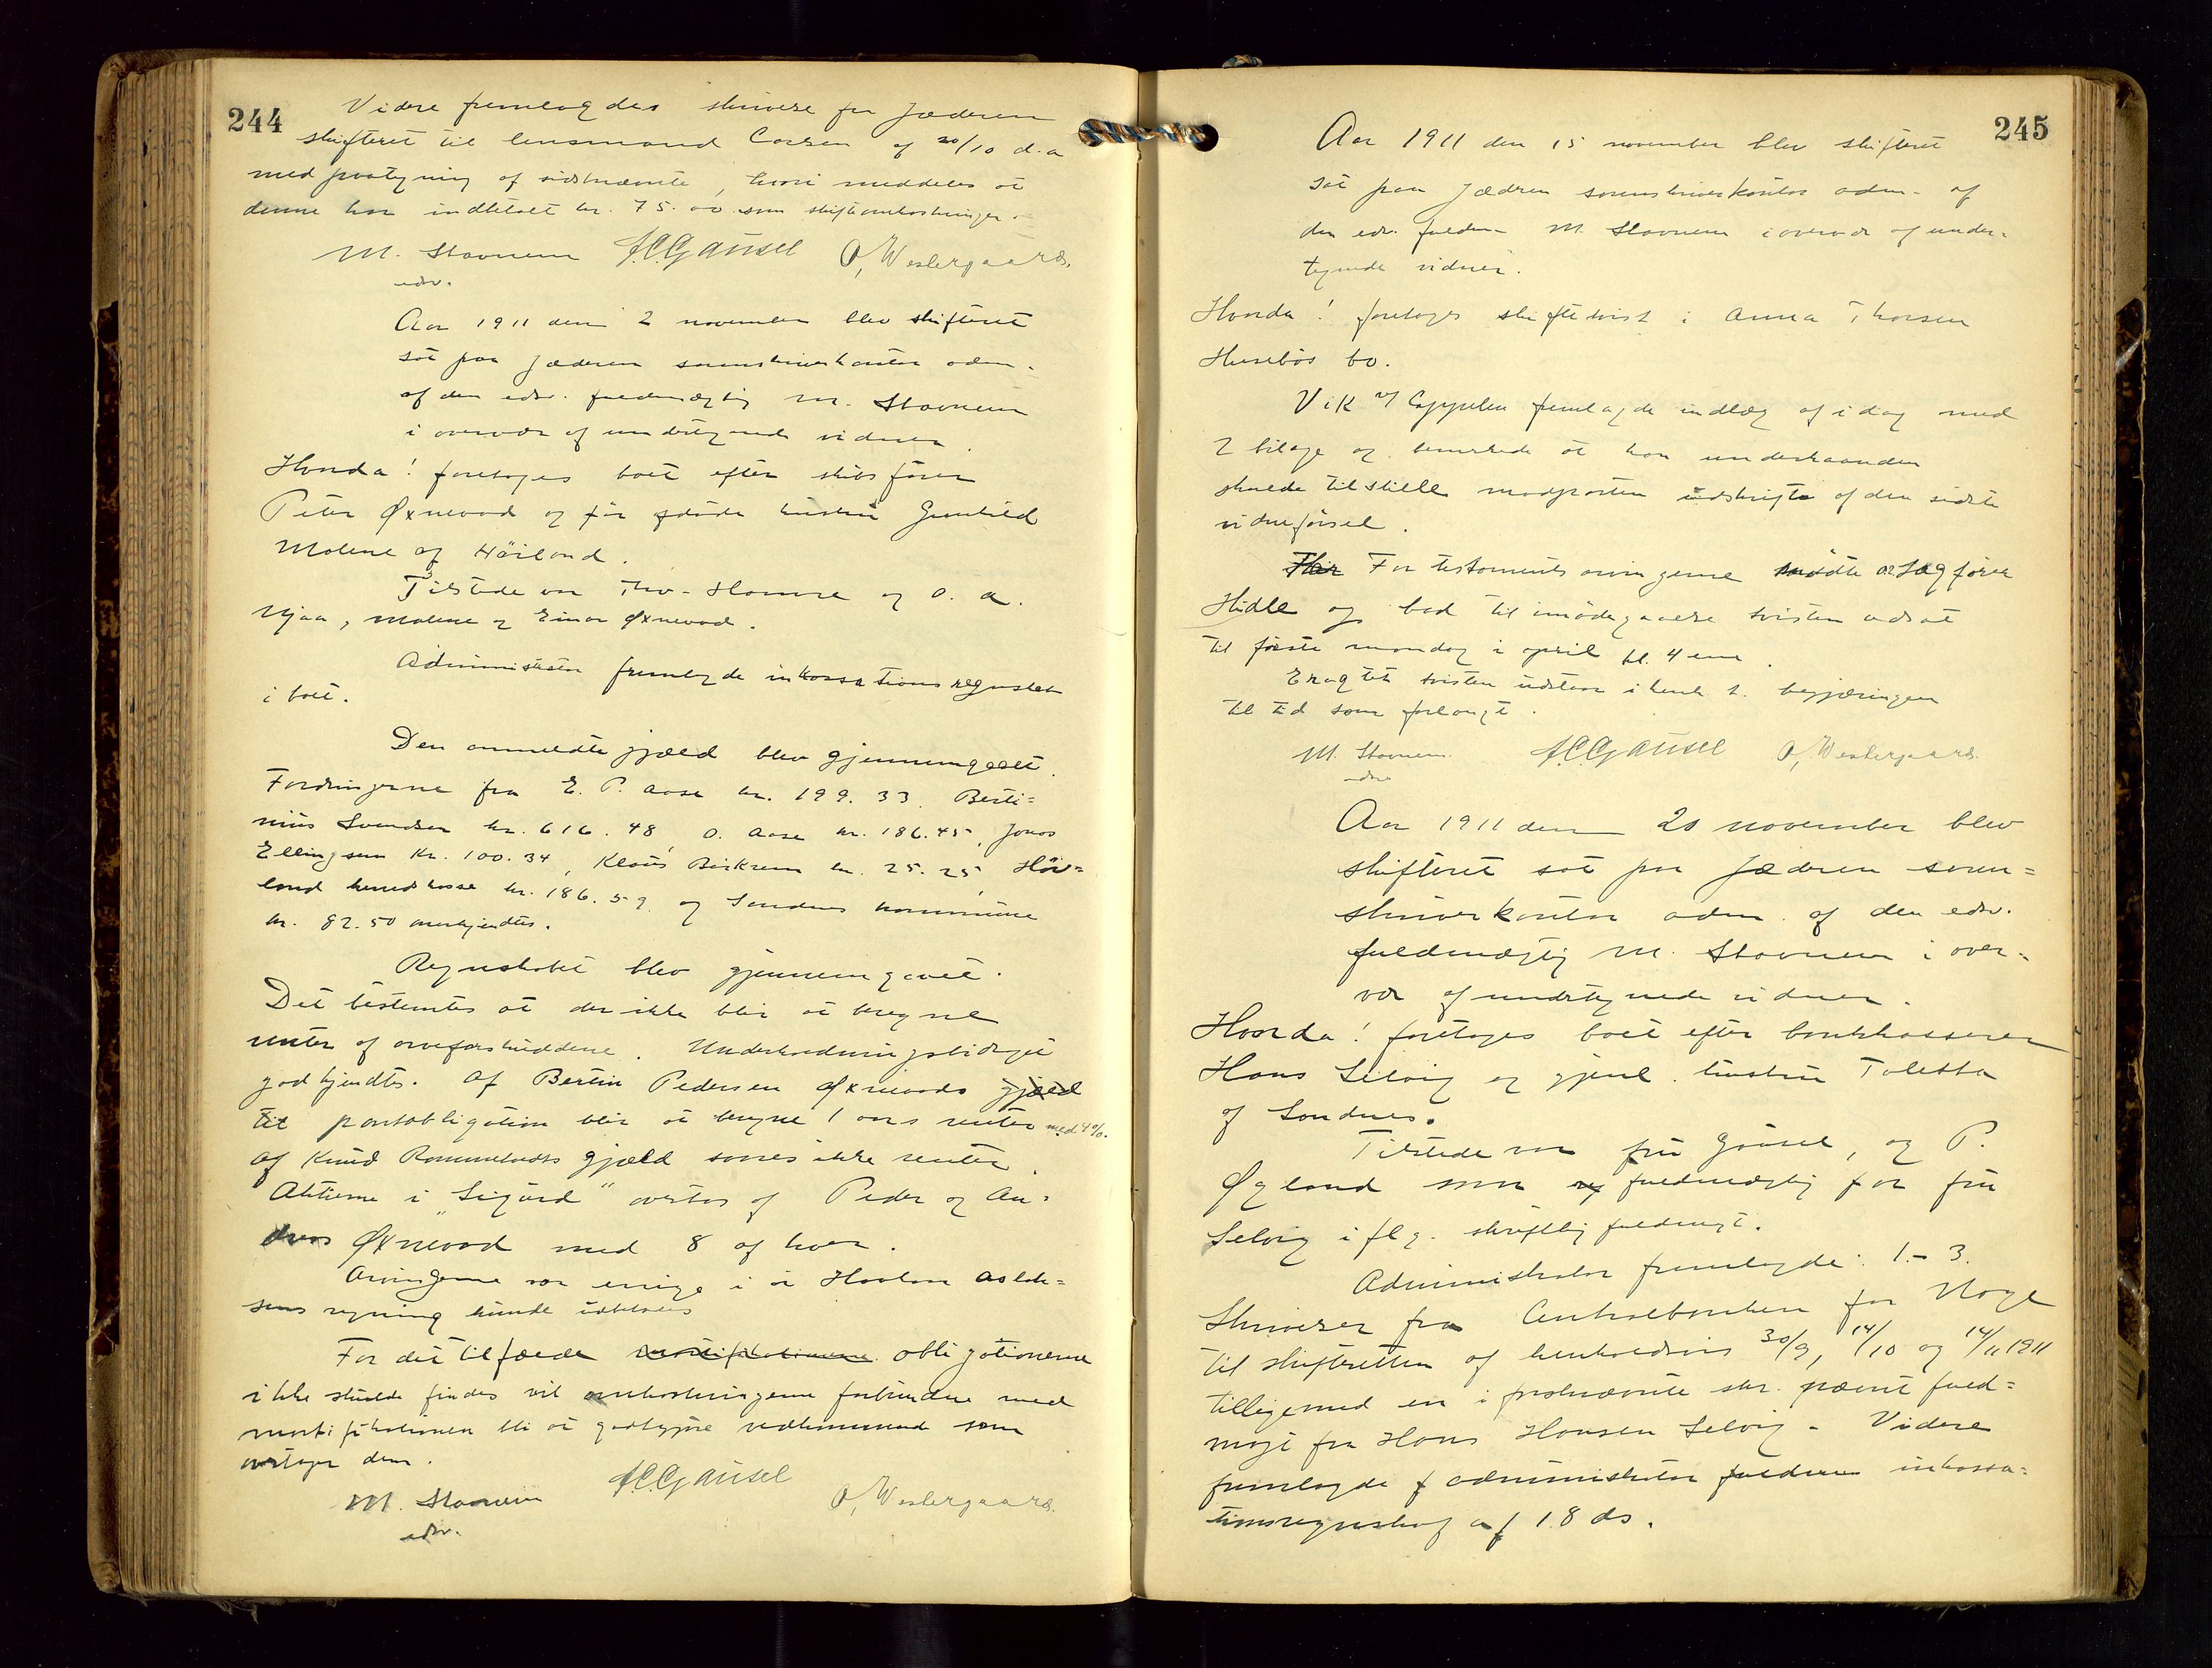 244
Videre fremlagdes skrivelse fra Jæderen
skifteret til lensmand Carsen af 20/10 d.a
med paategning af sidstnævnte, hvori meddeles at
denne har indbetalt kr. 75.00 som skifteomkostninger.
M. Stavnem A.C. Gausel O. Westergaard.
edsv.
Aar 1911 den 2 november blev skifteret
sat paa Jæderen sorenskriverkontor adm.
af den edsv. fuldmægtig M. Stavnem
i overvær af undertegnede vidner.
Hvorda! foretages boet efter skibsfører
Peter Øxnevad og før afdøde hustru Gunhild
Malene af Høiland.
Tilstede var Thv. Homre og O. A.
Njaa, Malene og Einar Øxnevad.
Administrator fremlagde inkassationsregnskab
i boet.
Den anmeldte gjæld blev gjennemgaaet.
Fordringerne fra E. P. Aase kr. 199.33. Berti=
nius Svendsen kr. 616.48, O. Aase kr. 186.45, Jonas
Ellingsen Kr. 100.34, Klaus Birkrem kr. 25.25, Høi=
land herredskasse kr. 186.59 og Sandnes kommune
kr. 82.50 anerkjendtes.
Regnskabet blev gjennemgaaet.
Det bestemtes at der ikke blir at beregne
renter af arveforskuddene. Underholdningsbidraget
godkjendtes. Af Bertin Pedersen Øxnevads gjæld
til pantobligation blir at beregne 1 aars renter med 4%.
Af Knud Rommetvedts gjæld svares ikke renter.
Aktierne i "Sigurd" overtas af Peder og An=
dreas Øxnevad med 8 af hver.
Arvingerne var enige i at Haakon Aslak=
sens regning kunde udbetales
For det tilfælde mortifikationerne obligationerne
ikke skulde findes vil omkostningerne forbundne med
mortifikationen bli at godtgjøre vedkommende som
overtager dem.
M. Stavnem A.C. Gausel O. Westergaard.
edsv.
245
Aar 1911 den 15 november blev skifteret
sat paa Jædren sorenskriverkontor adm. af
den edsv. fuldm. M. Stavnem i overvær af under=
tegnede vidner.
Hvorda! foretoges skiftetvist i Anna Thorsen
Husebøs bo.
Vik v/ Cappelen fremlagde indlæg af idag med
2 bilage og bemerkede at han underhaanden
skulde tilstille modparten udskrift af den sidste
vidneførsel.
For testamentsarvingerne mødte o.r.sagfører
Hidle og bad til imødegaaelse tvisten udsat
til første mandag i april kl. 4 em.
Eragtet tvisten udstaar i henh. t. begjæringen
til tid som forlangt.
M. Stavnem. A.C. Gausel O. Westergaard.
edsv
Aar 1911 den 20 november blev
skifteret sat paa Jæderen soren=
skriverkontor adm. af den edsv.
fuldmægtig M. Stavnem i over=
vær af undertegnede vidner.
Hvorda! foretoges boet efter bankkasserer
Hans Selvig og gjenl. hustru Toletta
af Sandnes.
Tilstede var fru Gausel, og P.
Øgland som fuldmægtig for fru
Selvig iflg. skriftlig fuldmagt.
Administrator fremlagde: 1.-3.
Skrivelser fra Centralbanken for Norge
til skifteretten af henholdsvis 30/9, 14/10 og 14/11 1911
tilligemed en i førstnævnte skr. nævnt fuld=
magt fra Hans Hansen Selvig - Videre
fremlagde administrator inkassa=
tionsregnskab af 18 ds.